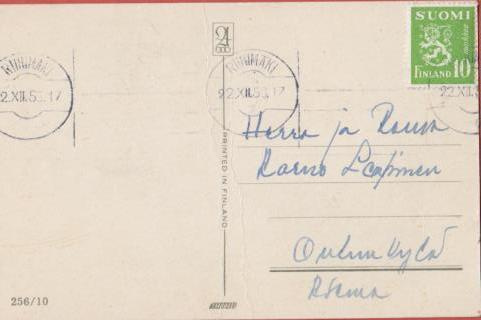 SUOMI
FINLAND 10
markkaa
RIIHIMÄKI
22.XII.53.17
RIIHIMÄKI
22.XII.53.17
22.XII.5
Herra ja Rouva
Raino
PRINTED IN FINLAND
Oulunkylä
Asema
256/10